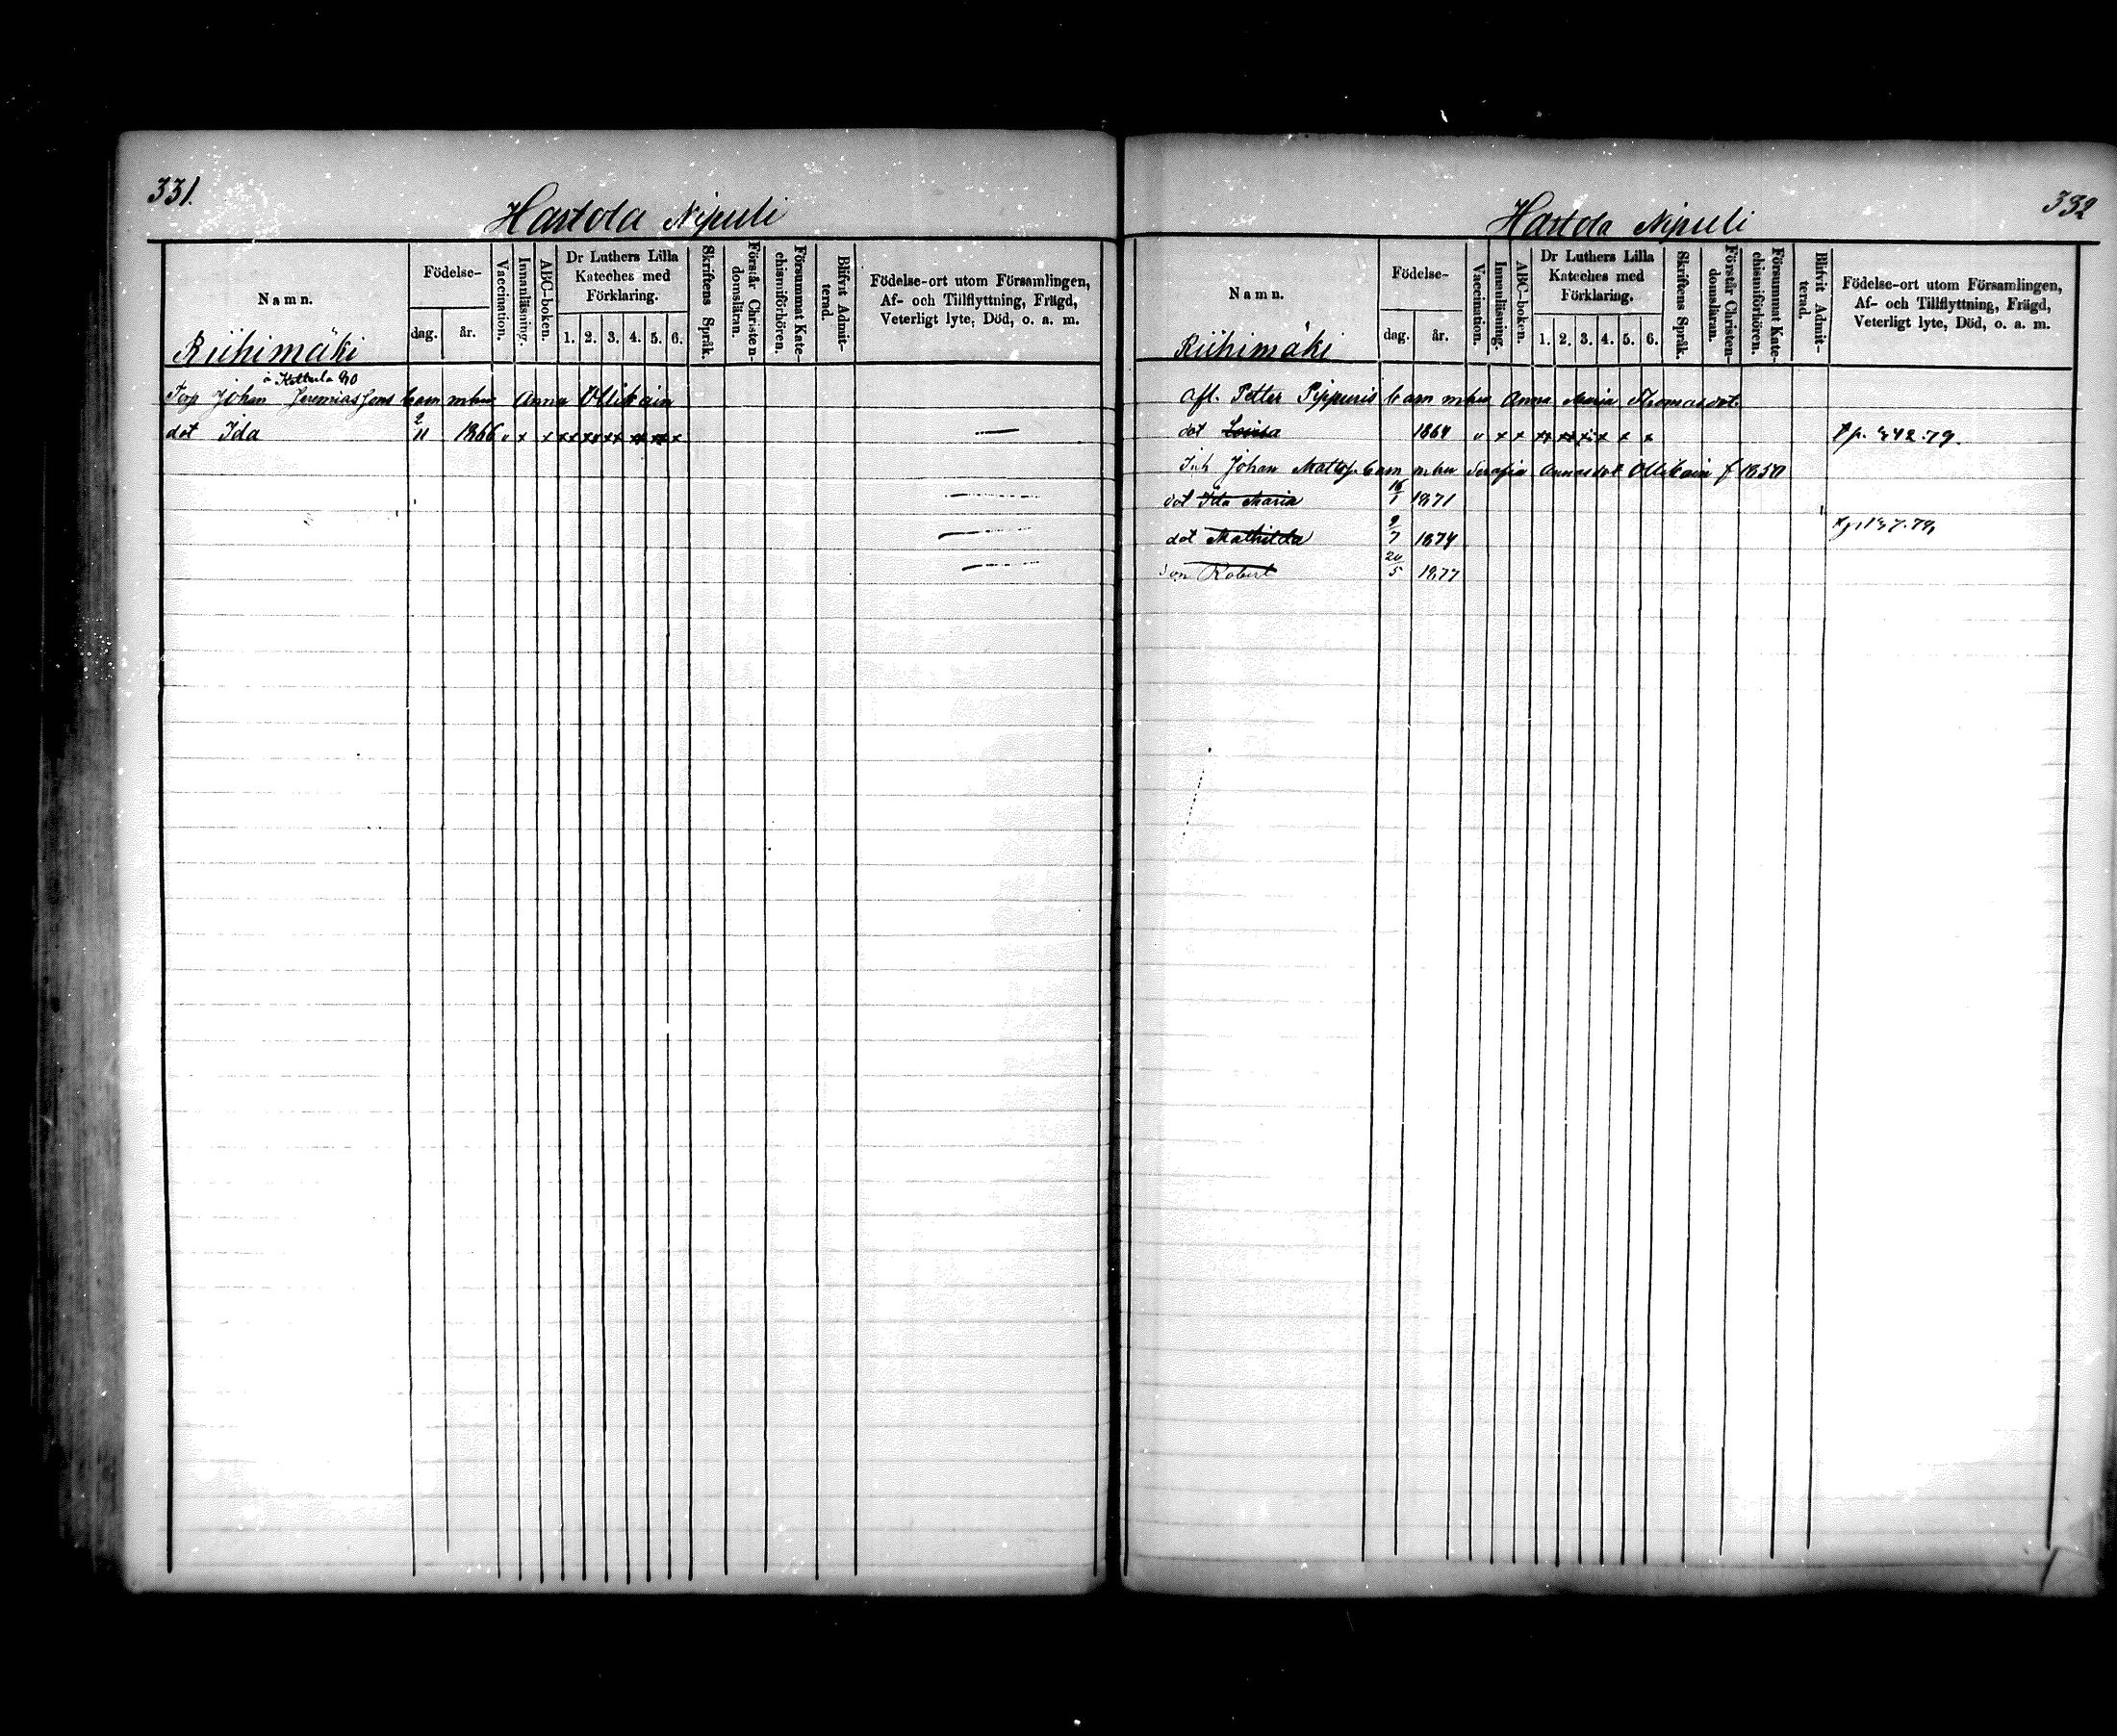 331.
Hartola Nipuli
Namn.
Födelse-
dag.
år.
Vaccination.
Innanläsning.
ABC-boken.
Dr Luthers Lilla
Kateches med
Förklaring.
1. 2. 3. 4. 5. 6.
Skriftens Språk.
Förstår Christen-
domsläran.
Försummat Kate-
chismiförhören.
Blifvit Admit-
terad.
Födelse-ort utom Församlingen,
Af- och Tillflyttning, Frägd,
Veterligt lyte, Död, o. a. m.
Riihimäki
Torp Johan Jeremias Sons Anna Ollikain
dot Ida 2/11 1866 v x x xx xx xx xx xx x
332
Hartola Nipuli
Namn.
Födelse-
dag.
år.
Vaccination.
Innanläsning.
ABC-boken.
Dr Luthers Lilla
Kateches med
Förklaring.
1. 2. 3. 4. 5. 6.
Skriftens Språk.
Förstår Christen-
domsläran.
Försummat Kate-
chismiförhören.
Blifvit Admit-
terad.
Födelse-ort utom Församlingen,
Af- och Tillflyttning, Frägd,
Veterligt lyte, Död, o. a. m.
Riihimäki
Afl. Petter Pippuris Anna Maria Thomasdot.
dot Lovisa 1864 v x x xx xx x x x x
Inh Johan Matts Serafia Annasdot Ollikain f 1850
dot Ida Maria 16/1 1871
dot Mathilda 9/7 1874
son Robert 20/5 1877